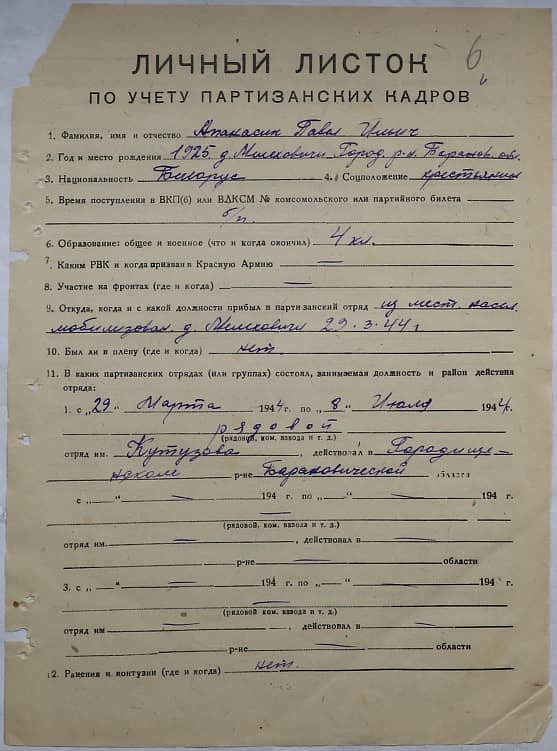 6
ЛИЧНЫЙ ЛИСТОК
ПО УЧЕТУ ПАРТИЗАНСКИХ КАДРОВ
1. Фамилия, имя и отчество Апанасик Павел Ильич
2. Год и место рождения 1925 д. Милковичи Город. р-н. Баранов. обл.
3. Национальность Белорус 4. Соцположение крестьянин
5. Время поступления в ВКП(б) или ВЛКСМ № комсомольского или партийного билета
б/п.
6. Образование: общее и военное (что и когда окончил) 4 кл.
7. Каким РВК и когда призван в Красную Армию —
8. Участие на фронтах (где и когда) —
9. Откуда, когда и с какой должности прибыл в партизанский отряд из мест. насел.
мобилизован. д. Милковичи 29.3.44 г
10. Был ли в плену (где и когда) нет.
11. В каких партизанских отрядах (или группах) состоял, занимаемая должность и район действия
отряда:
1. с „29“ Марта 1944 г. по „8“ Июля 1944 г.
рядовой
(рядовой, ком. взвода и т. д.)
отряд им. Кутузова, действовал в Городище-
нском р-не Барановической области
с „—“ — 194 г. по „—“ — 194 г.
—
(рядовой, ком. взвода и т. д.)
отряд им. —, действовал в —
р-не — области
3. с „—“ — 194 г. по „—“ — 194 г.
—
(рядовой, ком. взвода и т. д.)
отряд им —, действовал в —
р-не — области
12. Ранения и контузии (где и когда) нет.